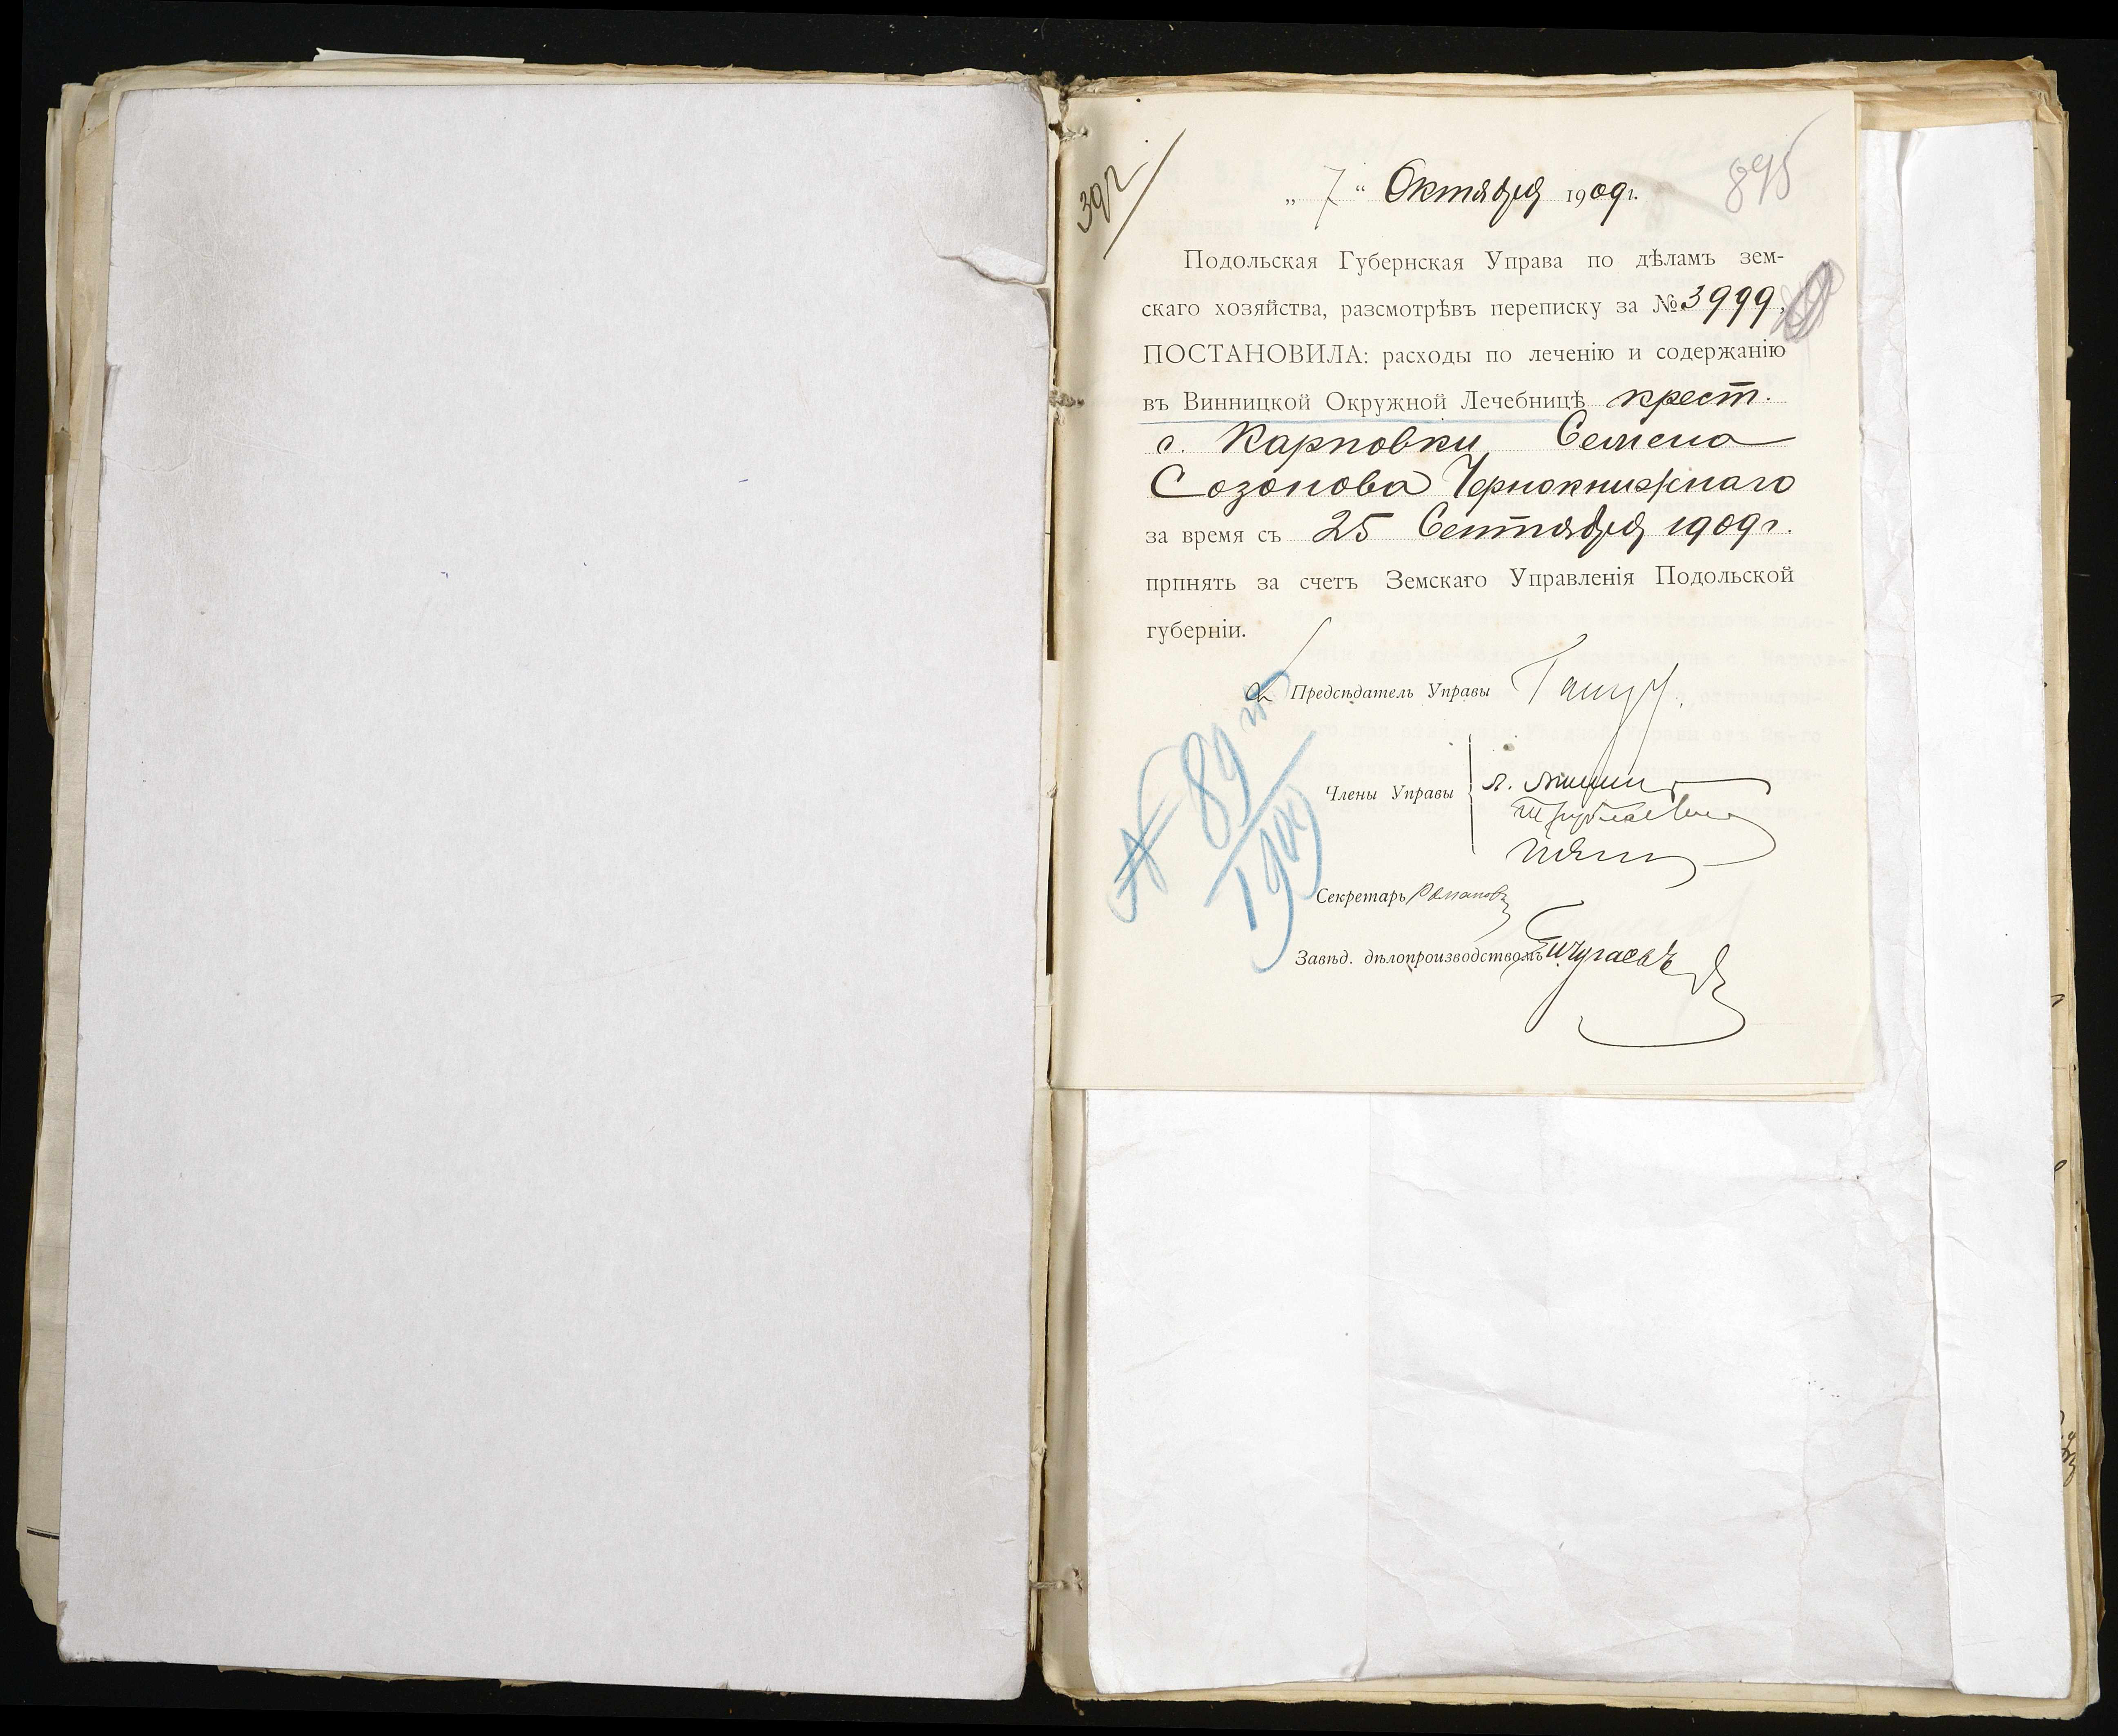 392
895
„ 7 “ Октября 1909 г.
Подольская Губернская Управа по дѣламъ зем-
скаго хозяйства, разсмотрѣвъ переписку за № 3999,
ПОСТАНОВИЛА: расходы по леченію и содержанію
въ Винницкой Окружной Лечебницѣ крест.
с. Карповки Семена
Созонова Чернокнижнаго
за время съ 25 Сентября 1909 г.
прпнять за счетъ Земскаго Управленія Подольской
губерніи.
Предсѣдатель Управы
Члены Управы
Секретарь Романовъ
Завѣд. дѣлопроизводствомъ
№ 89
1909